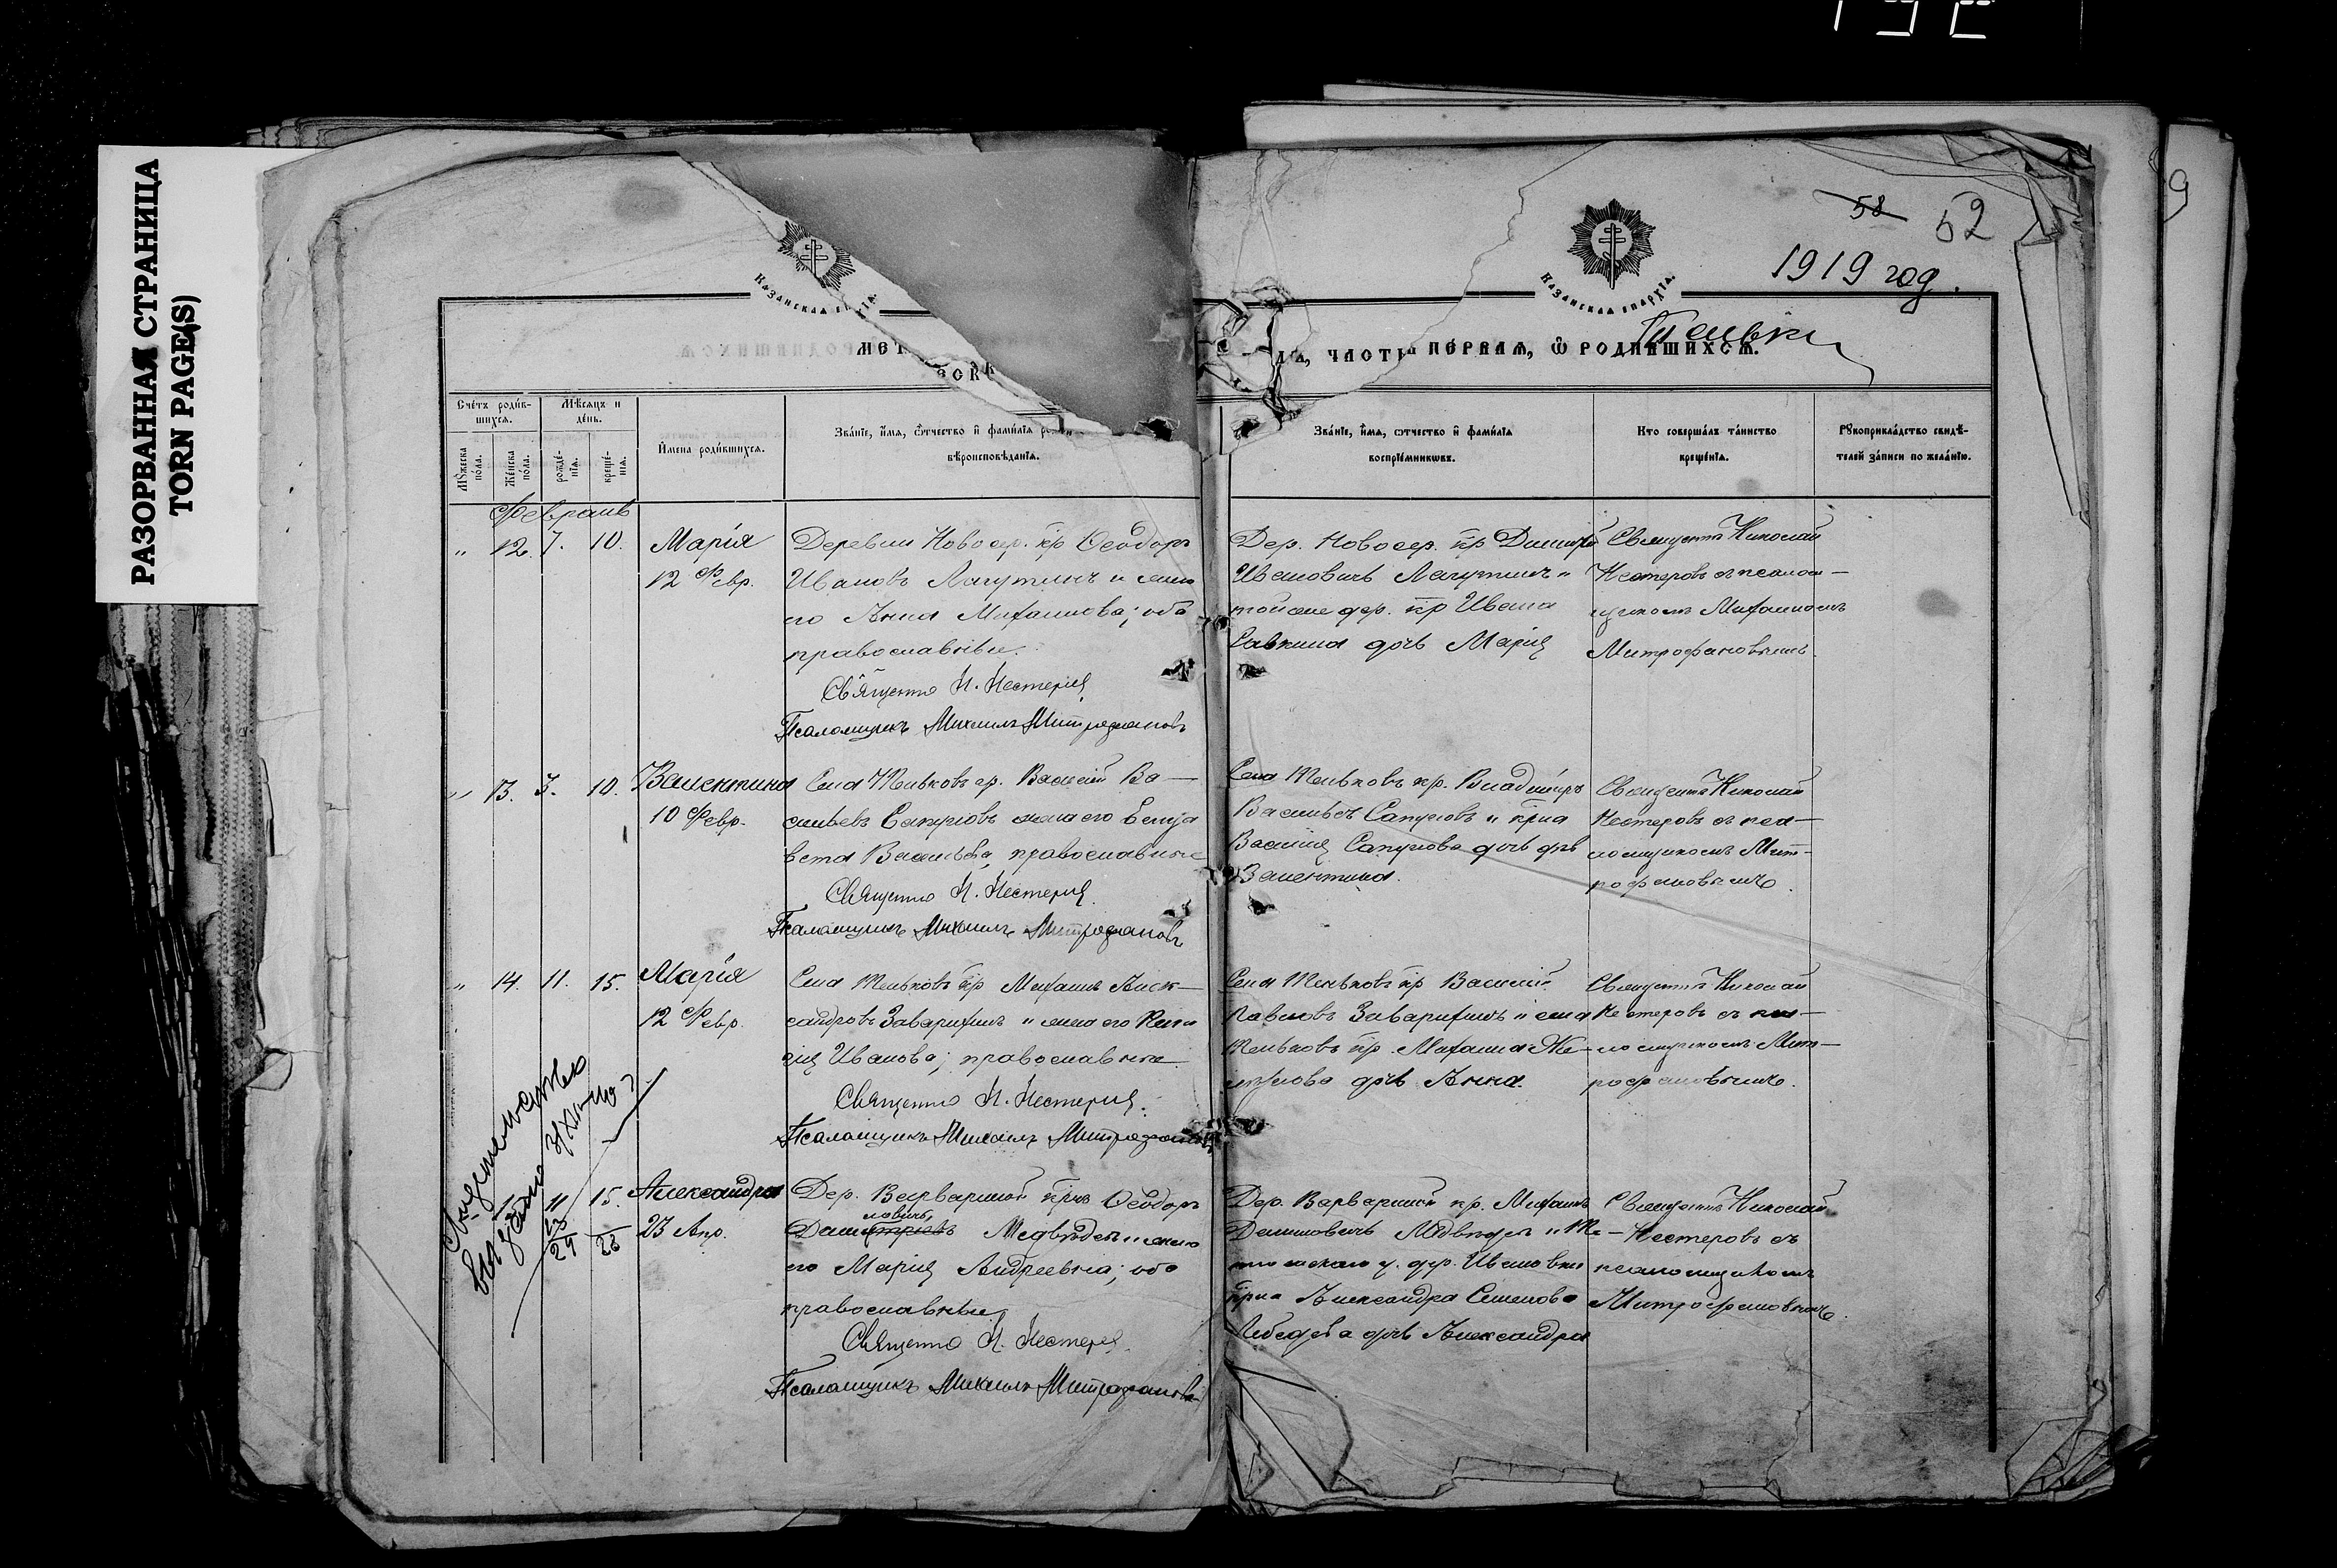 РАЗОРВАННАЯ СТРАНИЦА
TORN PAGE(S)
58 52
1919 год.
Казанская
Казанская епархїа.
Теньки
МЕТ
, ЧАСТЬ ПЕРВАЯ, Ѿ РОДИВШИХСЯ.
Счетъ родив-
шихся.
Мѣсяцъ и
день.
Мужеска
пола.
Женска
пола.
рожде-
нїя.
креще-
нїя.
Имена родившихся.
Званїе, имя, отчество и фамилїя
вѣроисповѣданїя.
Званїе, имя, отчество и фамилїя
воспрїемниковъ.
Кто совершалъ таинство
крещенїя.
Рукоприкладство свидѣ-
телей записи по желанїю.
Февраль
" 12. 7. 10. Марія
12 Февр.
Деревни Новосер. кр Ѳеодоръ
Ивановъ Лагутинъ и жена
его Анна Михаилова; оба
православные.
Священно Н. Нестеров
Псаломщикъ Михаилъ Митрофановъ
Дер. Новосер. кр Димитрій
Ивановичъ Лагутинъ и
тойже дер. кр Ивана
Савкина дочь Марія
Священникъ Николай
Нестеровъ съ псалом—
щикомъ Михаиломъ
Митрофановымъ.
" 13. 7. 10. Валентина
10 Февр.
Села Теньковъ гр. Василій Ва—
сильевъ Сапуговъ жена его Елиза
вета Васильева, православные
Священно Н. Нестеров.
Псаломщикъ Михаилъ Митрофановъ
Села Теньковъ кр. Владиміръ
Васильевъ Сапуговъ и кр-на
Василія Сапугова дочь дѣв
Валентина.
Священникъ Николай
Нестеровъ съ пса—
ломщикомъ Мит-
рофановымъ.
" 14. 11. 15. Марія
12 Февр.
Села Теньковъ кр Михаилъ Алек—
сандровъ Заварихинъ и жена его
Иванова; православные
Священно Н. Нестеров.
Псаломщикъ Михаилъ Митрофановъ
Села Теньковъ кр Василій
Павловъ Заварихинъ и села
Теньковъ кр. Михаила
дочь Анна.
Священникъ Николай
Нестеровъ съ пса—
ломщикомъ Мит—
рофановымъ.
Свидетельство
выдано
15 11 15. Александра
23 Апр.
Дер. Варварина кр-нъ Ѳеодоръ
ловичъ
Медвѣдевъ и жена
его Марія Андреевна; оба
православные.
Священно Н. Нестеров.
Псаломщикъ Михаилъ Митрофановъ
Дер. Варварина кр. Михаилъ
Даниловичъ Медвѣдевъ и Те—
тюшскаго у. дер. Ивановки
кр-на Александра Семенова
Лебедева дочь Александра
Священникъ Николай
Нестеровъ съ
псаломщикомъ
Митрофановымъ.